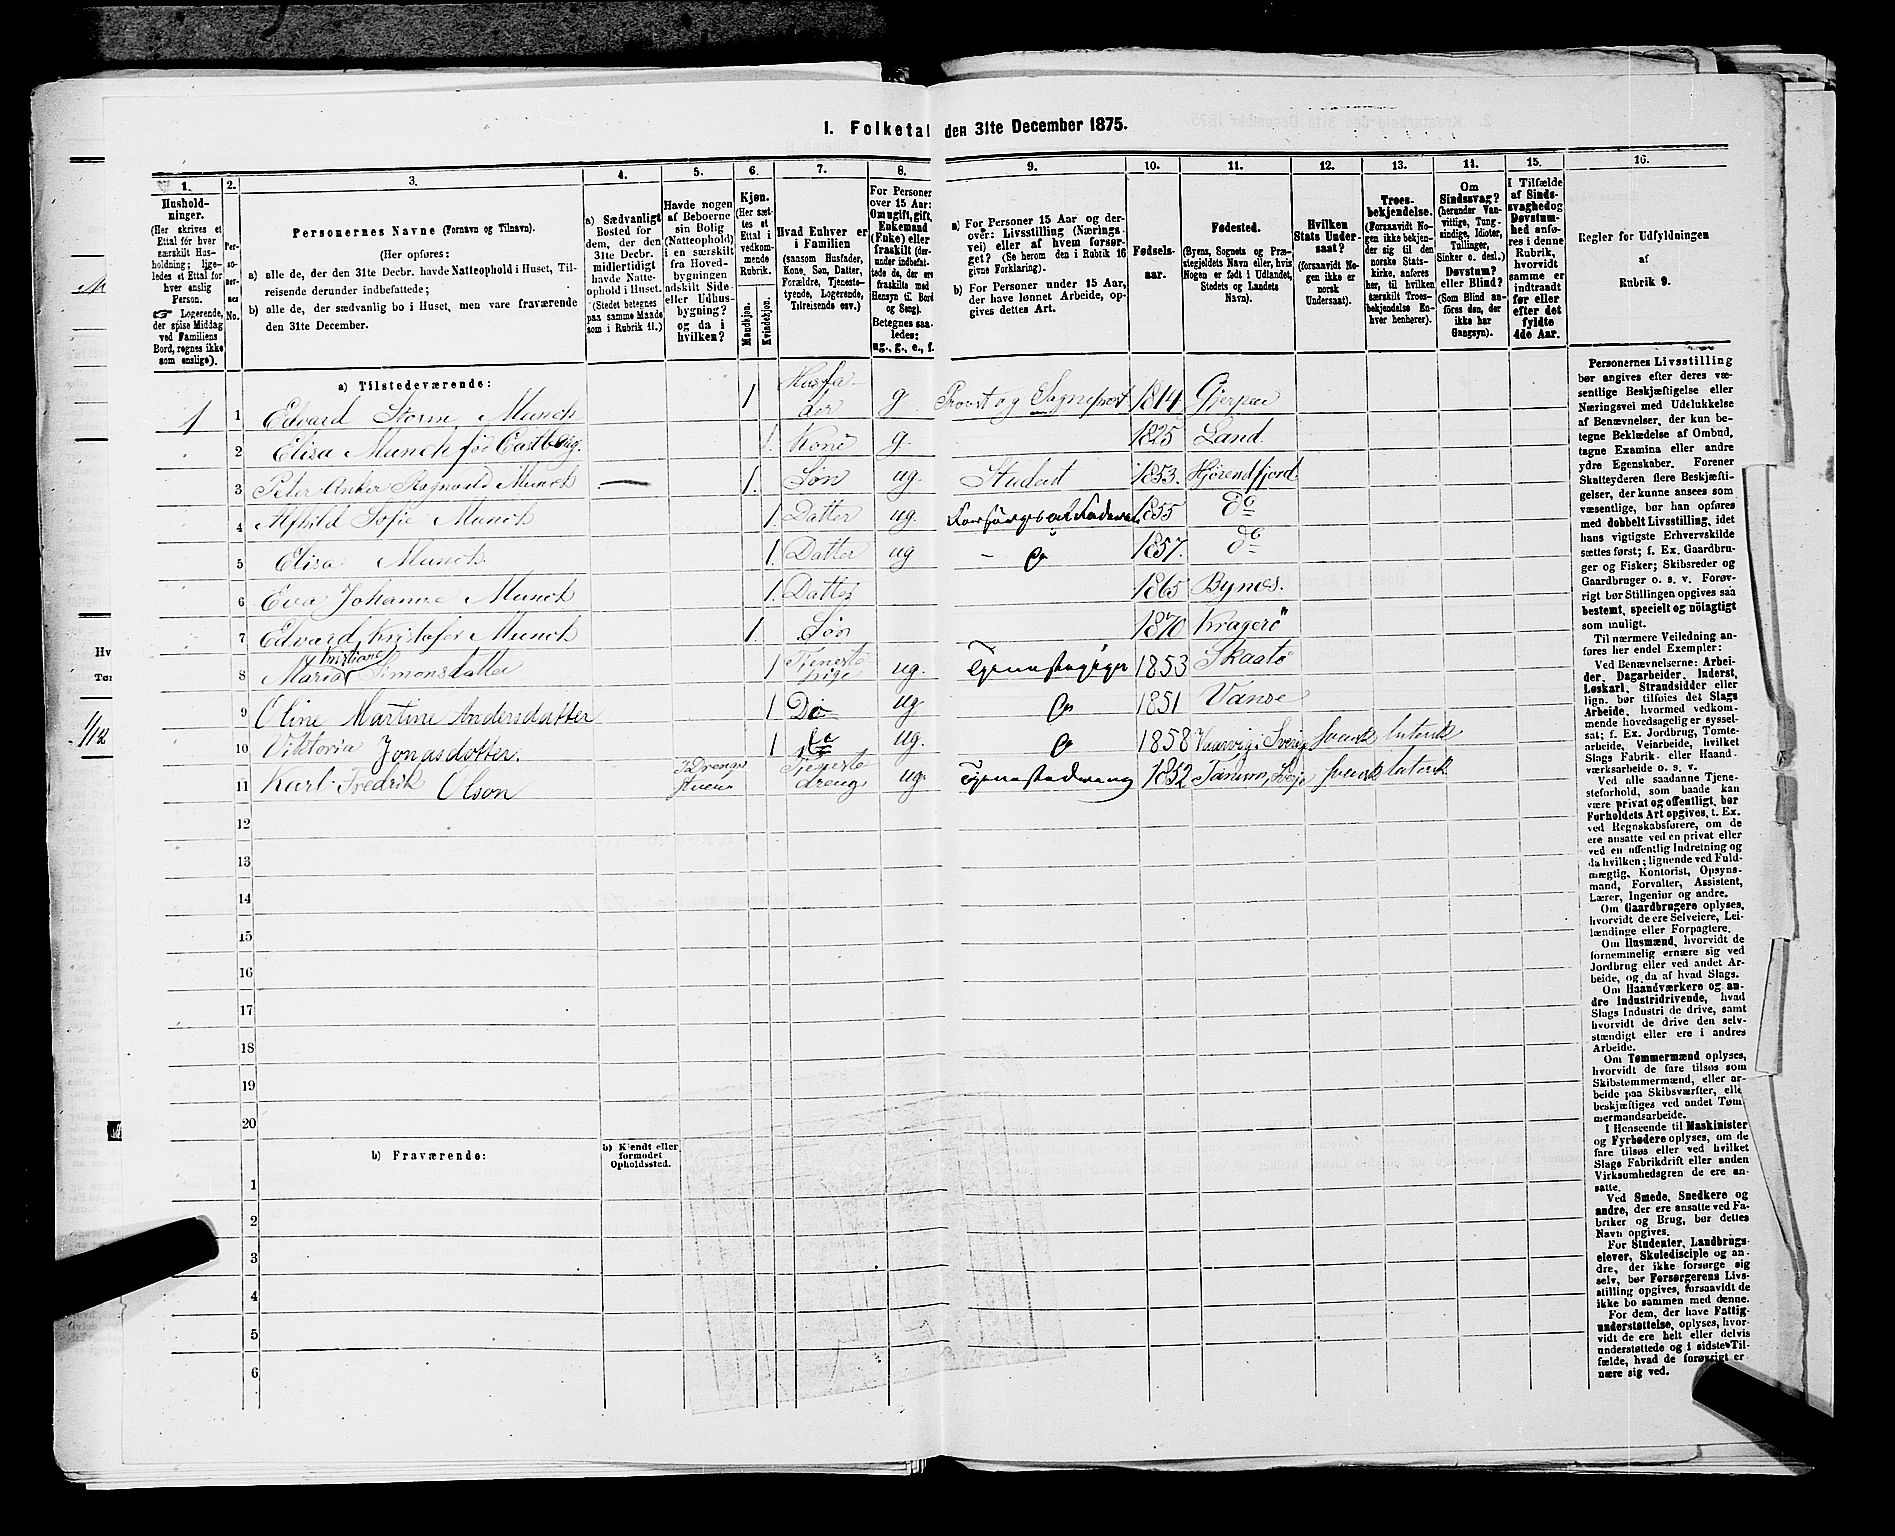 1. Folketal den 31te December 1875.
1. 2. 3. 4. 5. 6. 7. 8. 9. 10. 11. 12. 13. 14. 15. 16.
Hushold-
ninger.
(Her skrives et
Ettal för hver
særskilt Hus-
holdning; lige-
ledes et Ettal for
hver enslig
Person.
☞ Logerende,
der spise Middag
ved Familiens
Bord, regnes ikke
som enslige).
Per-
so-
ner-
nes
No.
Personernes Navne (Fornavn og Tilnavn).
(Her opføres:
a) alle de, der den 31te Decbr. havde Natteophold i Huset, Til-
reisende derunder indbefattede;
b) alle de, der sædvanlig bo i Huset, men vare fraværende
den 31te December.
a) Sædvanligt
Bosted for
dem, der den
31te Decbr.
midlertidigt
havde Natte-
ophold i Huset.
(Stedet betegnes
paa samme Maade
som i Rubrik 11.)
Havde nogen
af Beboerne
sin Bolig
(Natteophold)
i en særskilt
fra Hoved-
bygningen
adskilt Side-
eller Udhus-
bygning?
og da i
hvilken?
Kjøn.
(Her sæt-
tes et
Ettal i
vedkom-
mende
Rubrik.
Mandkjøn.
Kvindekjøn.
Hvad Enhver er
i Familien
(saasom Husfader,
Kone, Søn, Datter,
Forældre, Tjeneste-
tyende, Logerende,
Tilreisende osv.)
For Personer
over 15 Aar:
Om ugift, gift,
Enkemand
(Enke) eller
fraskilt (der-
under indbefat-
tede de, der ere
fraskilte med
Hensyn til Bord
og Seng).
Betegnes saa-
ledes:
ug., g., e., f.
a) For Personer 15 Aar og der-
over: Livsstilling (Nærings-
vei) eller af hvem forsør-
get? (Se herom den i Rubrik 16
givne Forklaring).
b) For Personer under 15 Aar,
der have lønnet Arbeide, op-
gives dettes Art.
Fødsels-
aar.
Fødested.
(Byens, Sognets og Præ-
stegjeldets Navn eller, hvis
Nogen er født i Udlandet,
Stedets og Landets
Navn).
Hvilken
Stats Under-
saat?
(forsaavidt No-
gen ikke er
norsk
Undersaat).
Troes-
bekjendelse.
(Forsaavidt No-
gen ikke bekjen-
der sig til den
norske Stats-
kirke, anføres
her, til hvilken
særskilt Troes-
bekjendelse En-
hver henhører).
Om
Sindssvag?
(herunder Van-
vittige, Tung-
sindige, Idioter,
Tullinger,
Sinker o. desl.)
Døvstum?
eller Blind?
(Som Blind an-
føres den, der
ikke har
Gangsyn).
I Tilfælde
af Sinds-
svaghed og
Døvstum-
hed anfø-
res i denne
Rubrik,
hvorvidt
samme er
indtraadt
før eller
efter det
fyldte
4de Aar.
Regler for Udfyldningen
af
Rubrik 9.
a) Tilstedeværende:
1 1 Edvard Storm Munch 1 Husfader g Provst og Sognepræst 1814 Gjerpen
2 Elisa Munch før Castberg. 1. Kone g. 1825 Land.
3 Peter Anker Ragnvald Munch — 1. Søn ug. Student 1853. Hjørendfjord
4 Alfhild Sofie Munch 1. Datter ug. Forsörges af Faderen 1855 do
5 Elisa Munch. 1. Datter ug - " 1857. do
6 Eva Johanne Munch 1. Datter 1865 Bynes.
7 Edvard Kristofer Munch 1. Søn 1870 Kragerö
8 Maria Kristiane Simonsdatter 1 Tjeneste pige ug. Tjenestepige 1853 Skaatö
9 Oline Martine Andersdatter 1 Do ug. " 1851 Vanse
10 Viktoria Jonasdotter. 1 do ug. " 1858 Sverig svensk luthersk
11 Karl Fredrik Olson I Drenge stuen Tjeneste dreng ug. Tjenestedreng 1852 svensk luthersk
12
13
14
15
16
17
18
19
20
b) Fraværende:
b) Kjendt eller
formodet
Opholdssted.
1
2
3
4
5
6
Personernes Livsstilling
bør angives efter deres væ-
sentlige Beskjæftigelse eller
Næringsvei med Udelukkelse
af Benævnelser, der kun be-
tegne Beklædelse af Ombud,
tagne Examina eller andre
ydre Egenskaber. Forener
Skatteyderen flere Beskjæfti-
gelser, der kunne ansees som
væsentlige, bør han opføres
med dobbelt Livsstilling, idet
hans vigtigste Erhvervskilde
sættes først; f. Ex. Gaardbru-
ger og Fisker; Skibsreder og
Gaardbruger o. s. v. Forøv-
rigt bør Stillingen opgives saa
bestemt, specielt og nöiagtigt
som muligt.
Til nærmere Veiledning an-
føres her endel Exempler:
Ved Benævnelserne: Arbei-
der, Dagarbeider, Inderst,
Løskarl, Strandsidder eller
lign. bør tilføies det Slags
Arbeide, hvormed vedkom-
mende hovedsagelig er syssel-
sat; f. Ex. Jordbrug, Tomte-
arbeide, Veiarbeide, hvilket
Slags Fabrik- eller Haand-
værksarbeide o. s. v.
Ved alle saadanne Tjene-
steforhold, som baade kan
være privat og offentligt, bør
Forholdets Art opgives, t. Ex.
ved Regnskabsførere, om de
ere ansatte ved en privat eller
ved en offentlig Indretning og
da hvilken; lignende ved Fuld-
mægtig, Kontorist, Opsyns-
mand, Forvalter, Assistent,
Lærer, Ingeniør og andre.
Om Gaardbrugere oplyses,
hvorvidt de ere Selveiere, Lei-
lændinge eller Forpagtere.
Om Husmænd, hvorvidt de
fornemmelig ernære sig ved
Jordbrug eller ved andet Ar-
beide, og da af hvad Slags.
Om Haandværkere og an-
dre Industridrivende, hvad
Slags Industri de drive, samt
hvorvidt de drive den selv-
stændigt eller ere i andres
Arbeide.
Om Tømmermænd oplyses,
hvorvidt de fare tilsøs som
Skibstømmermænd, eller ar-
beide paa Skibsværfter, elle
beskjæftiges ved andet Tøm
mermandsarbeide.
I Henseende til Maskinister
og Fyrbødere oplyses, om de
fare tilsøs eller ved hvilket
Slags Fabrikdrift eller anden
Virksomhedsgren de ere an-
satte.
Ved Smede, Snedkere og
andre, der ere ansatte ved Fa-
briker og Brug, bør dettes
Navn opgives.
For Studenter, Landbrugs-
elever, Skoledisciple og an-
dre, der ikke forsørge sig
selv, bør Forsørgerens Livs-
stilling opgives, forsaavidt de
ikke bo sammen med denne.
For dem, der have Fattig-
understøttelse, oplyses, hvor-
vidt de ere helt eller delvis
understøttede og i sidste Til-
fælde, hvad de forøvrigt er
nære sig ved.